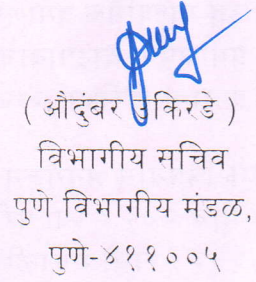 ( औदुंबर उकिरडे )
विभागीय सचिव
पुणे विभागीय मंडळ,
पुणे-४११००५